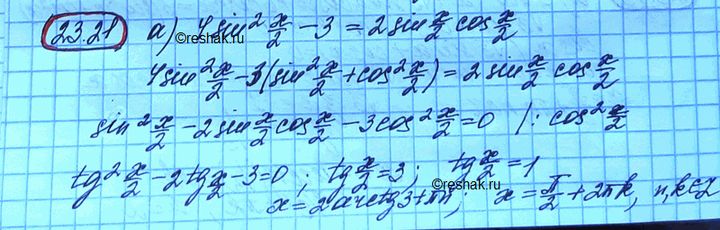 23.21 а) 4sin² x/2 − 3 = 2sin x/2 cos x/2
©reshak.ru
4sin² x/2 − 3(sin² x/2 + cos² x/2) = 2sin x/2 cos x/2
sin² x/2 − 2sin x/2 cos x/2 − 3cos² x/2 = 0 /: cos² x/2
tg² x/2 − 2tg x/2 − 3 = 0 ; tg x/2 = 3; tg x/2 = 1
©reshak.ru
x = 2arctg3 + πn; x = π/2 + 2πk, n,k∈Z